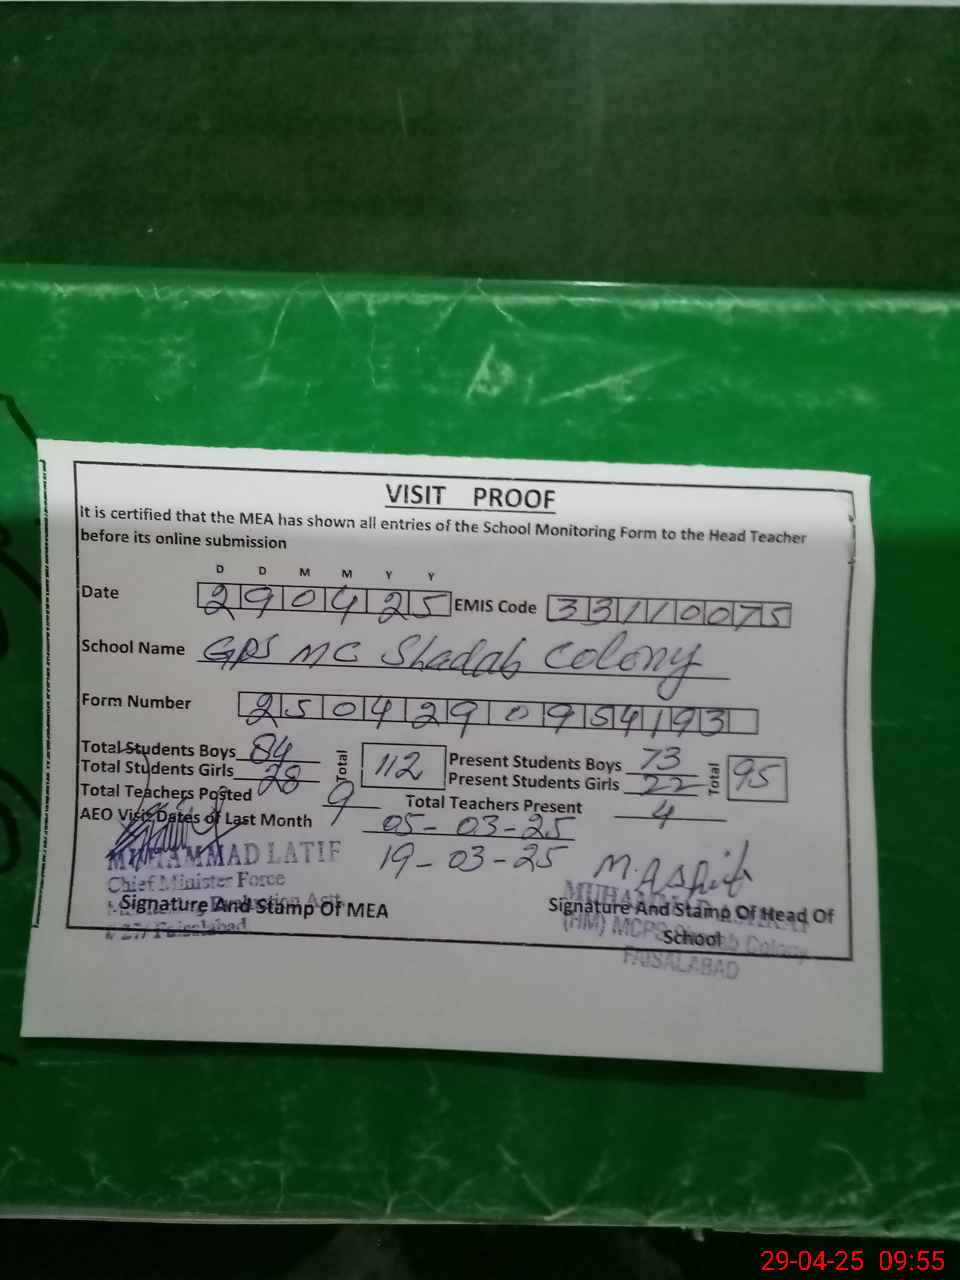 VISIT PROOF
It is certified that the MEA has shown all entries of the School Monitoring Form to the Head Teacher
before its online submission
D D M M Y Y
Date 290425 EMIS Code 33110075
School Name GPS MC Shadab Colony
Form Number 2504290954193
Total Students Boys 84 Total 112 Present Students Boys 73 Total 95
Total Students Girls 28 Present Students Girls 22
Total Teachers Posted 9 Total Teachers Present 4
AEO Visit Dates of Last Month 05-03-25
19-03-25
MUHAMMAD LATIF
Chief Minister Force
Signature And Stamp Of MEA
Faisalabad
M. Ashraf
Signature And Stamp Of Head Of
School
(HM) MCPS Colony
FAISALABAD
29-04-25 09:55